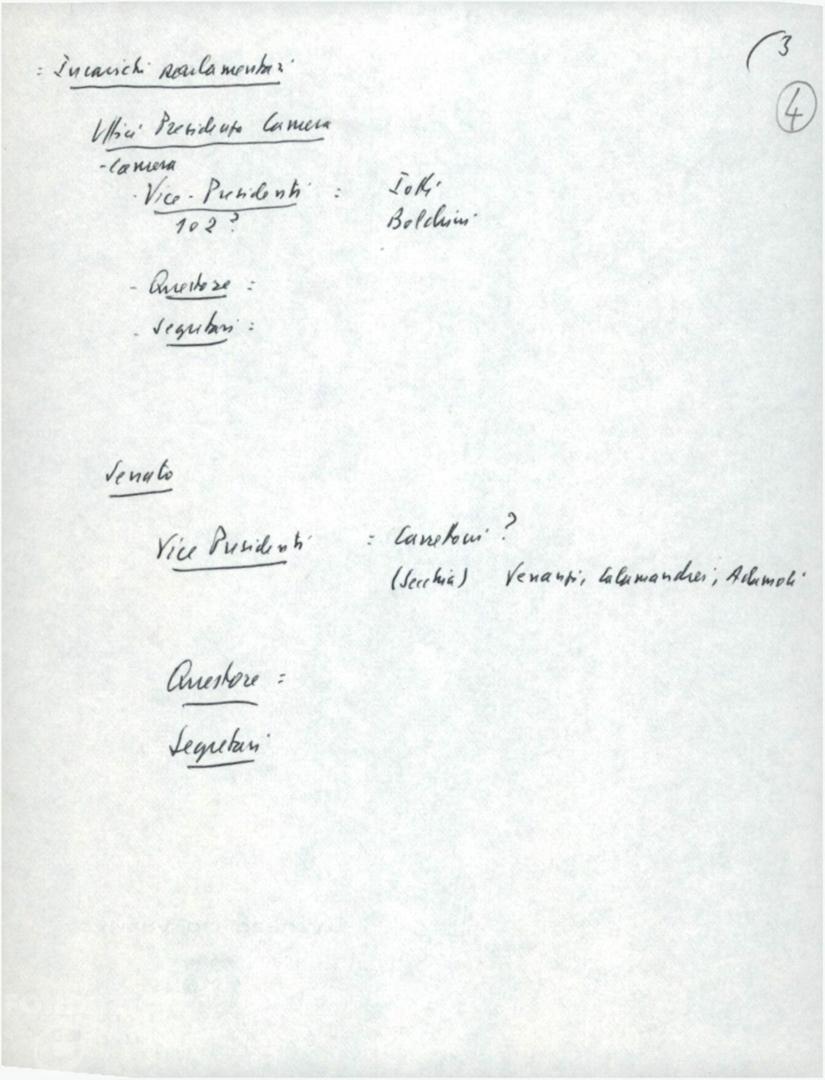 (3
4
= Incarichi parlamentari
Uffici Presidenza Camera
- Camera
- Vice-Presidenti : Iotti
1 o 2 ? Boldrini
- Questore :
- Segretari :
Senato
Vice Presidenti : Carettoni ?
(Secchia) Venanzi, Calamandrei, Adamoli
Questore :
Segretari